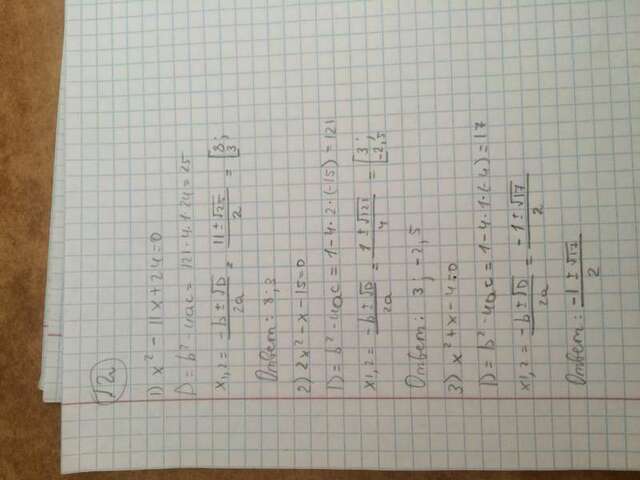 √2
1) x² - 11x + 24 = 0
D = b² - 4ac = 121 - 4·1·24 = 25
x1,2 = (-b ± √D)/2a = (11 ± √25)/2 = [8; 3
Ответ: 8; 3
2) 2x² - x - 15 = 0
D = b² - 4ac = 1 - 4·2·(-15) = 121
x1,2 = (-b ± √D)/2a = (1 ± √121)/4 = [3; -2,5
Ответ: 3; -2,5
3) x² + x - 4 = 0
D = b² - 4ac = 1 - 4·1·(-4) = 17
x1,2 = (-b ± √D)/2a = (-1 ± √17)/2
Ответ: (-1 ± √17)/2